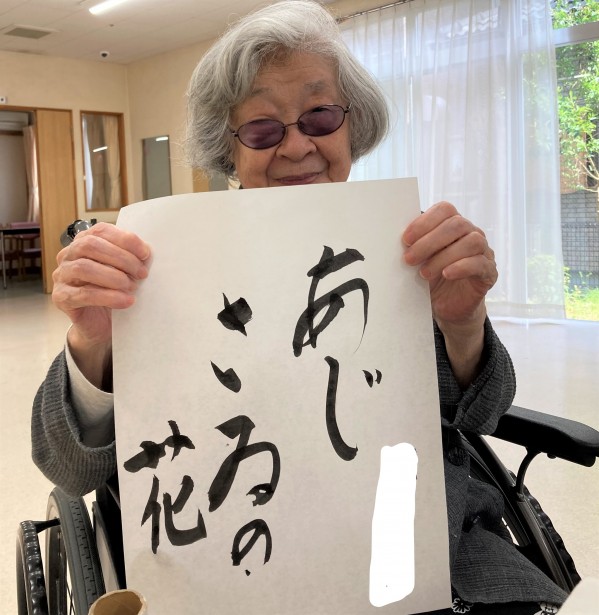 あじ
さゐの
花